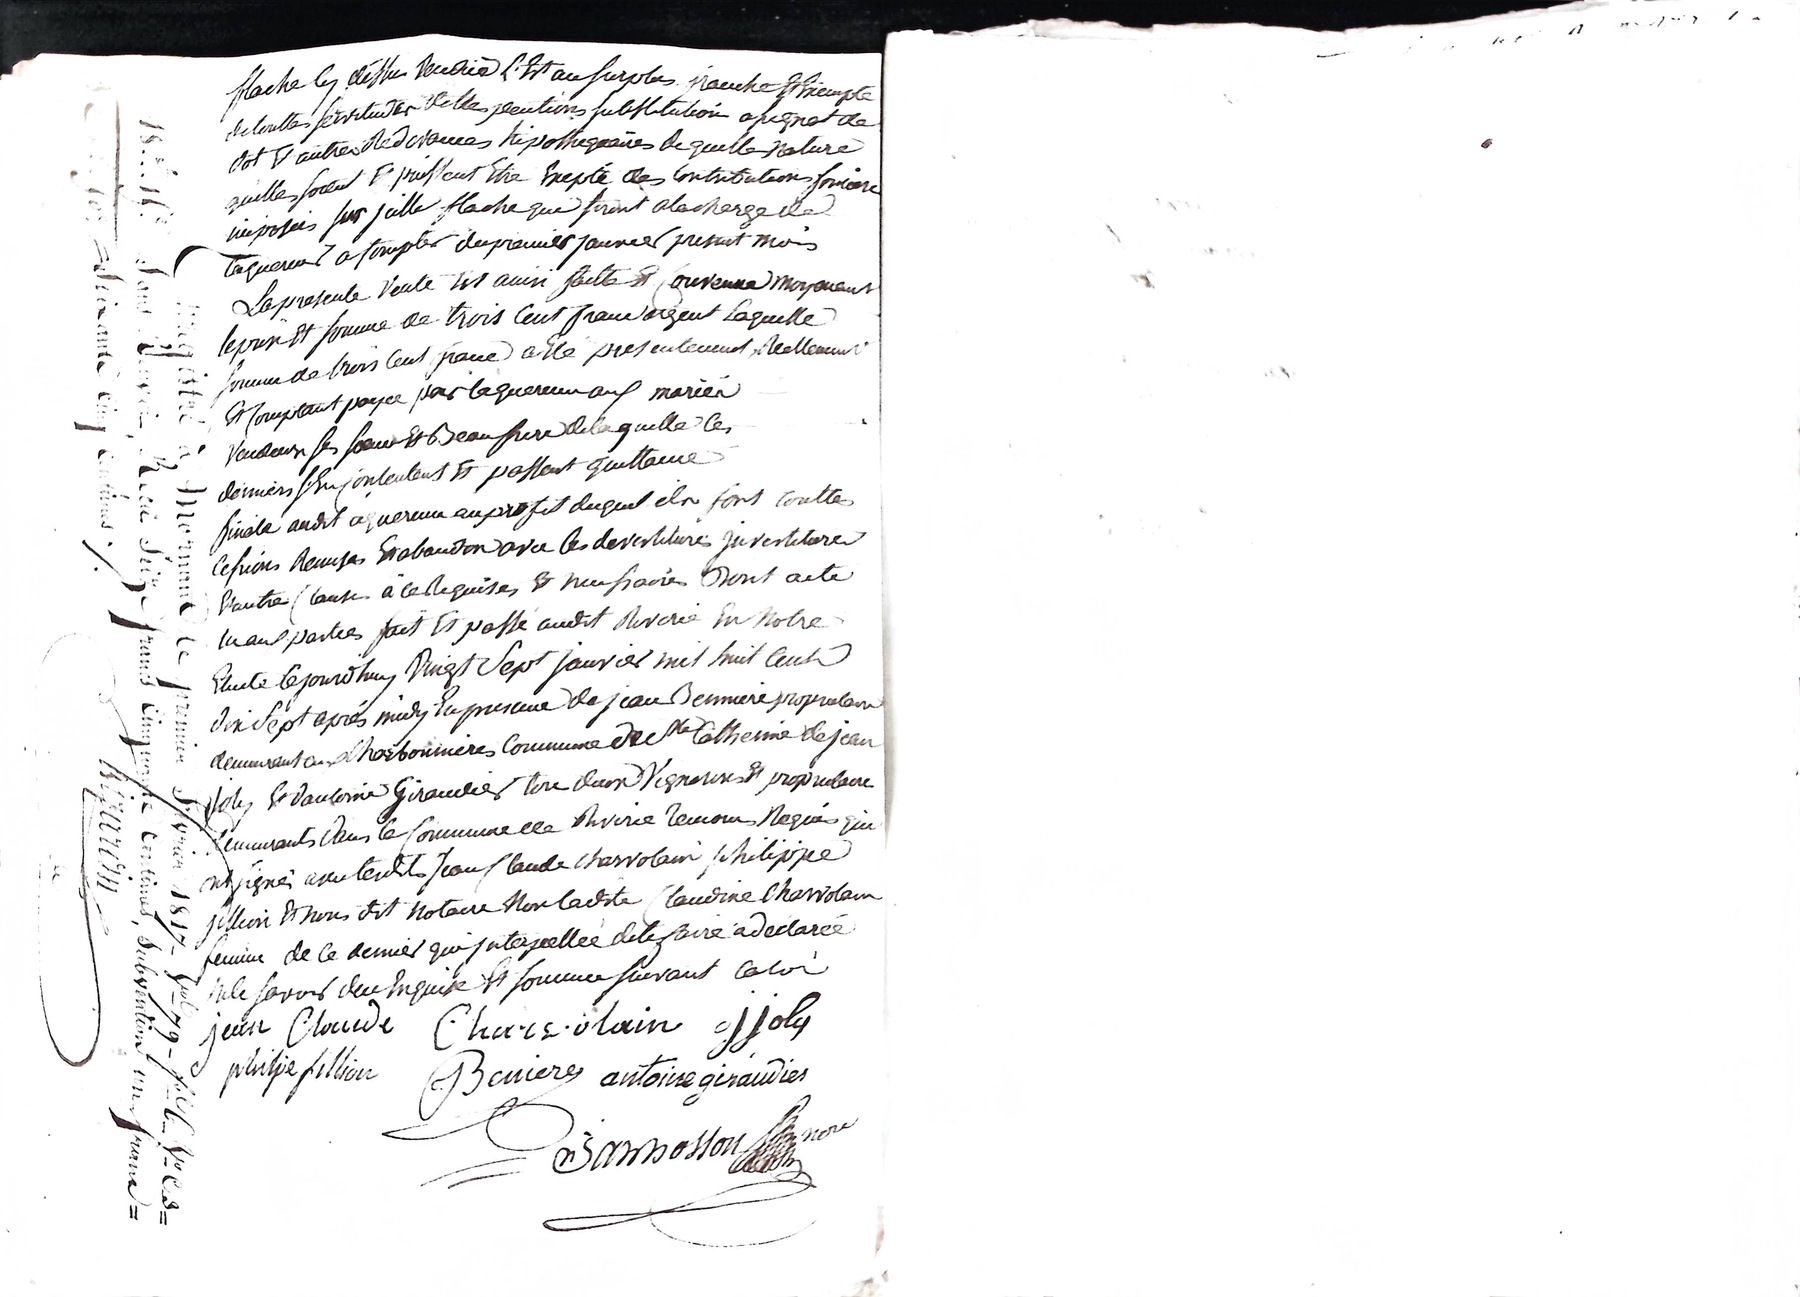 flache cy dessus vendue l'Est au surplus franche Et Exempte
de touttes servitudes dettes pentions substitution augmet de
dot Et autres Redevances hipothequaires de quelle Nature
quelles soient Et puissent Etre Excepté des Contributions fonciere
imposées sur jcelle flache que seront alacharge de
laquereur a Compter du premier janvier present mois
La presente Vente Est ainsi faitte Et Convenue moyenant
le prix Et somme de trois Cent franc argent Laquelle
somme de trois Cent franc a Eté presentement, Reellement
Et Comptant payée par laquereur aux mariés
Vendeurs ses soeur Et Beaufrere de la quelle Ces
derniers s'En Contentent Et passent quittance
finale audit aquereur au profit duquel ils font touttes
Cessions Remises Et abandon avec les devestitures jnvestitures
Et autres Clauses à ce Requises Et necessaires Dont acte
lu aux parties fait Et passé audit Riverie En Notre
Etude Cejourd'huy Vingt Sept janvier mil huit Cent
dix Sept après midy En presence de jean Bennière propriétaire
demeurant aux Charbonnières Commune de Ste Catherine de jean
joly Et d'antoine Giraudier tous deux Vignerons Et propriétaire
demeurants dans la Commune de Riverie temoins Requis qui
ont signés avec lesdits Jean Claude charvolain philippe
fillion Et Nous dit Notaire Non ladite Claudine Charvolain
femme de ce dernier qui jnterpellée de le faire a déclarée
ne le savoir de ce Enquise Et sommée suivant la loi
jean Claude Charvolain jjoly
philipe fillion Beniere antoine giraudier
Barmosson nore
Enregistré à Mornant le premier Février 1817 - fol. 79 -
Reçu Seize francs Cinquante centimes, Subvention un franc =
Soixante Cinq Centimes ./.